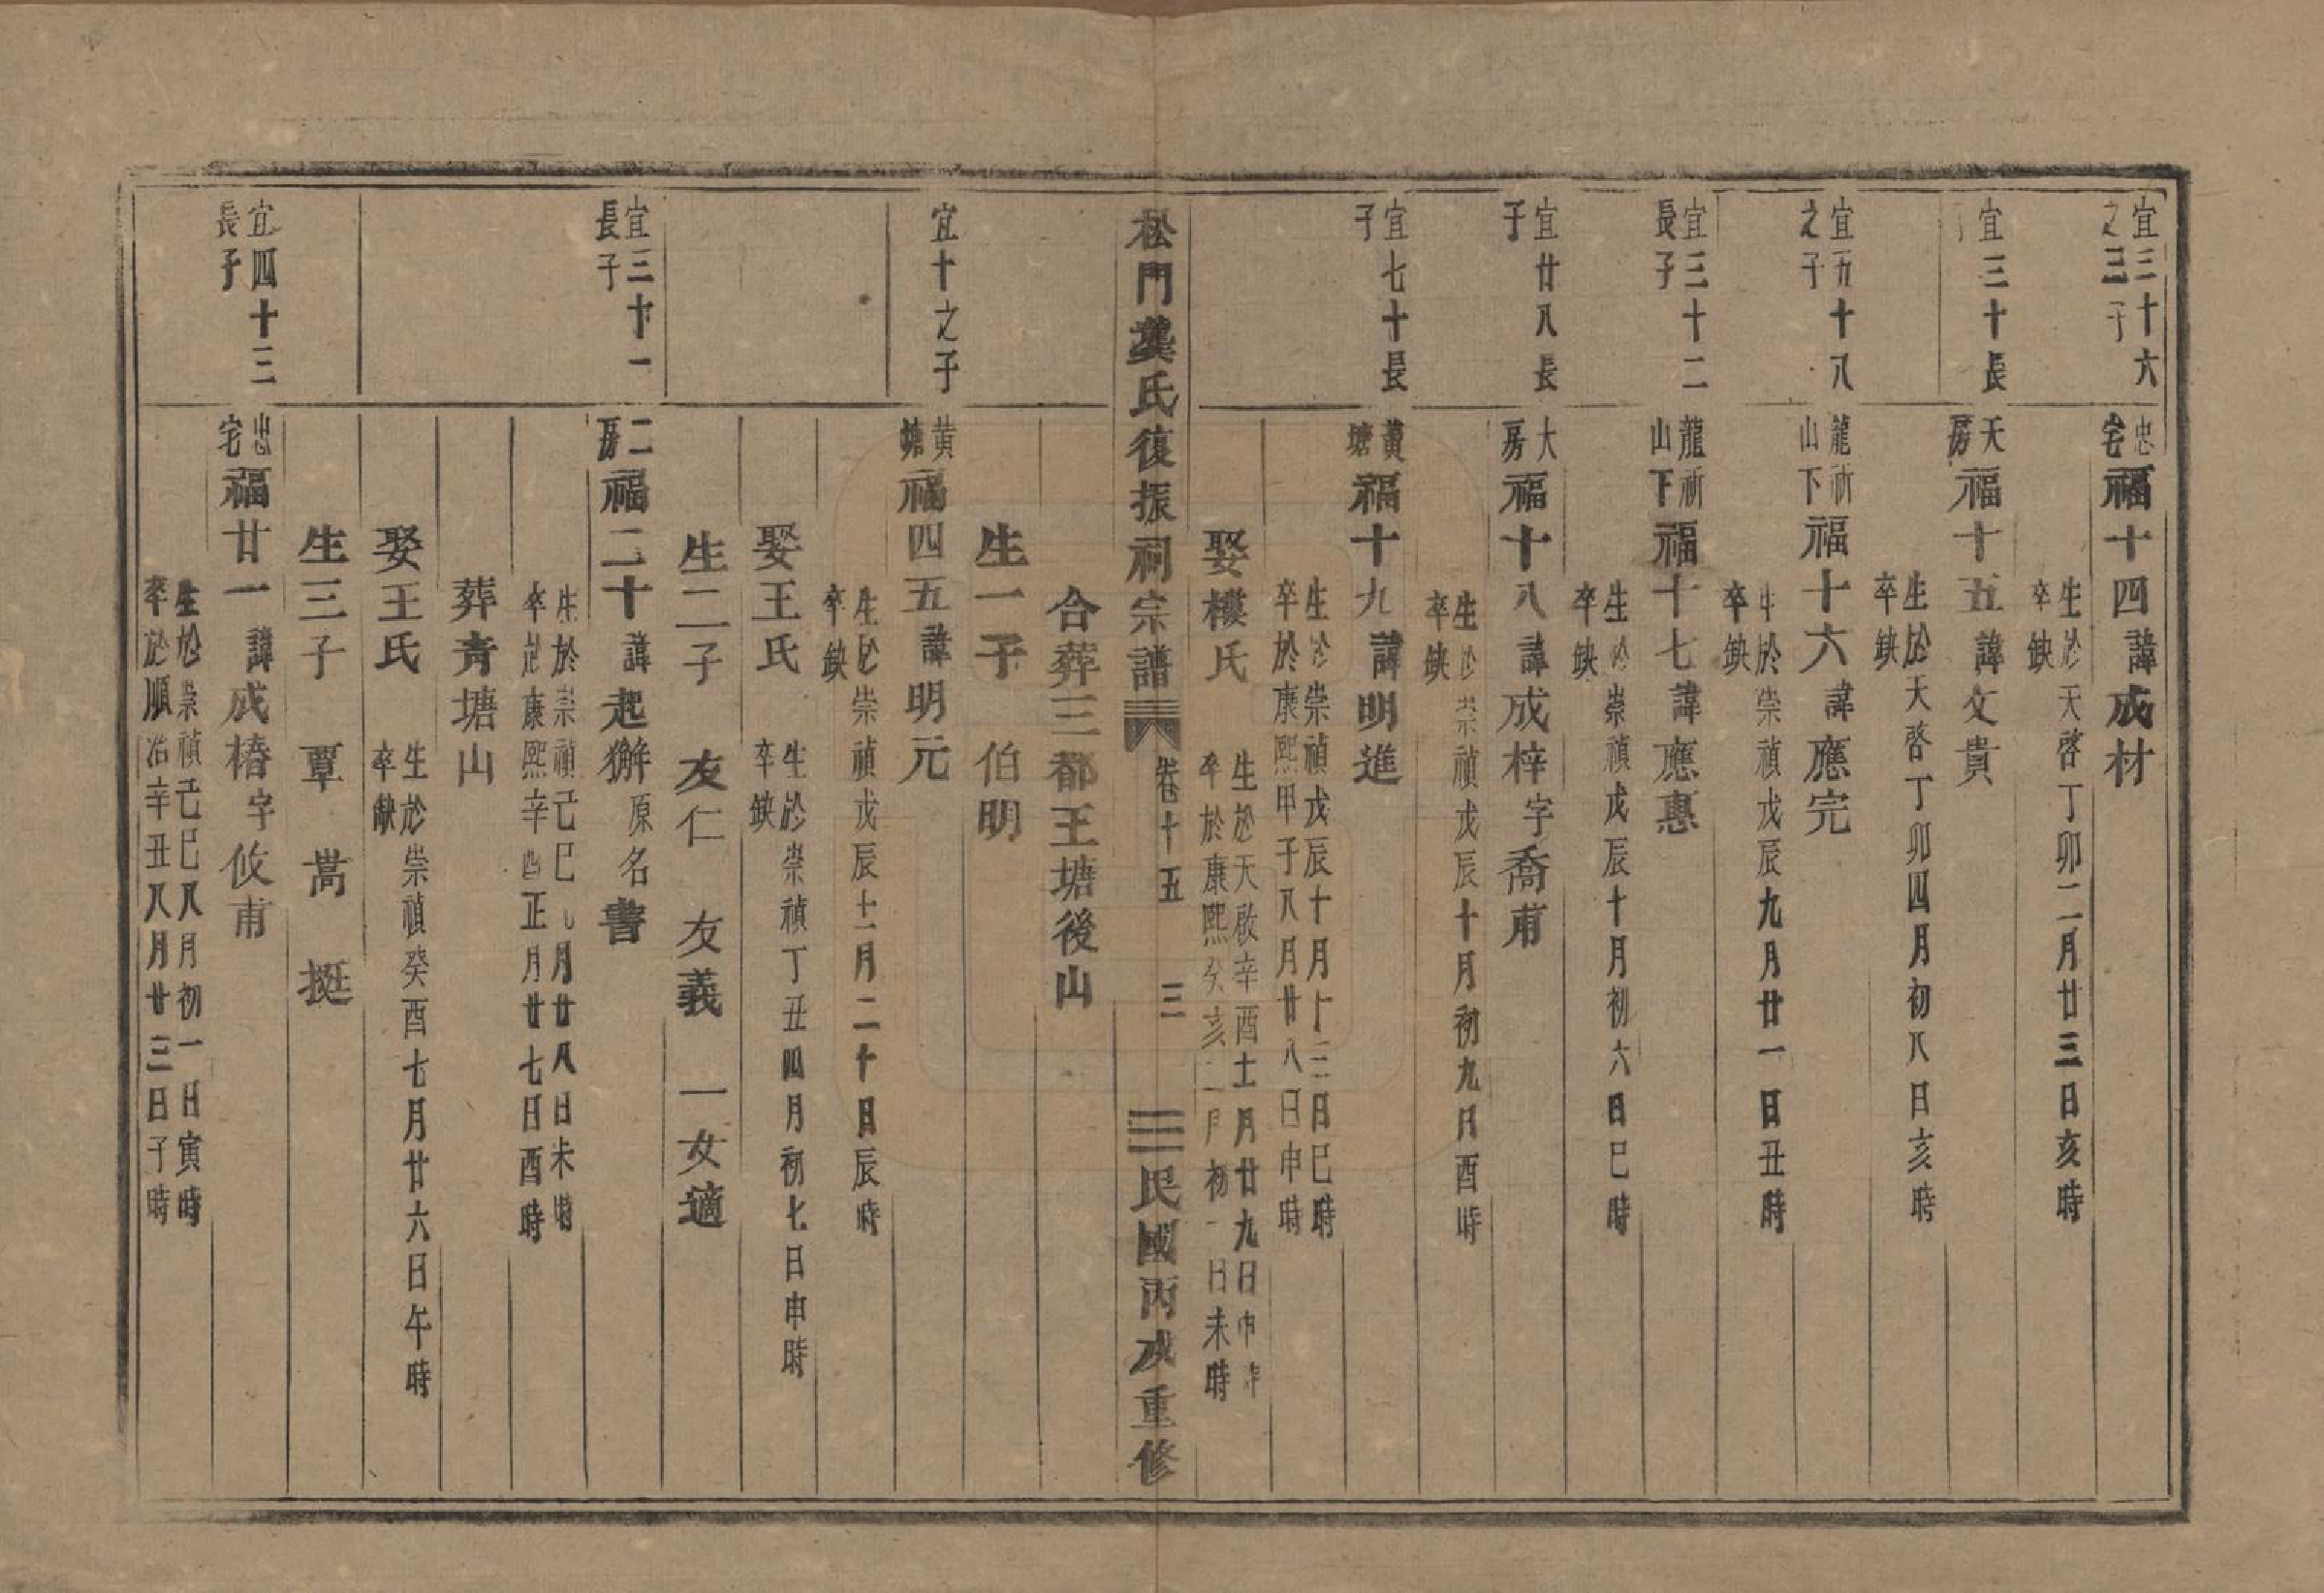 宜三十六
之三子
忠宅福十四諱成材
生於天啓丁卯二月廿三日亥時
卒缺
宜三十長
天房福十五諱文貴
生於天啓丁卯四月初八日亥時
卒缺
宜五十八
之子
龍祈山下福十六諱應完
生於崇禎戊辰九月廿一日丑時
卒缺
宜三十二
長子
龍祈山下福十七諱應惠
生於崇禎戊辰十月初六日巳時
卒缺
宜廿八長
子
大房福十八諱成梓字喬甫
生於崇禎戊辰十月初九日酉時
卒缺
宜七十長
子
黃塘福十九諱明進
生於崇禎戊辰十月十三日巳時
卒於康熙甲子八月廿八日申時
娶樓氏
生於天啟辛酉十一月廿九日申時
卒於康熙癸亥二月初一日未時
松門龔氏復振祠宗譜
卷十五
三
民國丙戌重修
合葬三都王塘後山
生一子 伯明
宜十之子
黃塘福四五諱明元
生於崇禎戊辰十一月二十日辰時
卒缺
娶王氏
生於崇禎丁丑四月初七日申時
卒缺
生二子 友仁 友義 一女適
宜三十一
長子
二房福二十諱起獬原名書
生於崇禎己巳 月廿八日未時
卒於康熙辛酉正月廿七日酉時
葬青塘山
娶王氏
生於崇禎癸酉七月廿六日午時
卒缺
生三子 覃 暠 挺
宜四十三
長子
忠宅福廿一諱成椿字攸甫
生於崇禎己巳八月初一日寅時
卒於順治辛丑八月廿三日子時